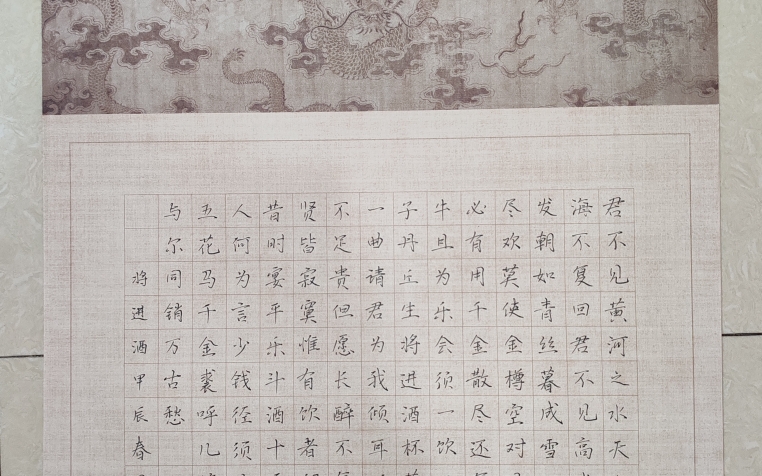 君不见黄河之水天
海不复回君不见高
发朝如青丝暮成雪
尽欢莫使金樽空对
必有用千金散尽还
牛且为乐会须一饮
子丹丘生将进酒杯
一曲请君为我倾耳
不足贵但愿长醉不
贤皆寂寞惟有饮者
昔时宴平乐斗酒十
人何为言少钱径须
五花马千金裘呼儿
与尔同销万古愁
将进酒甲辰春